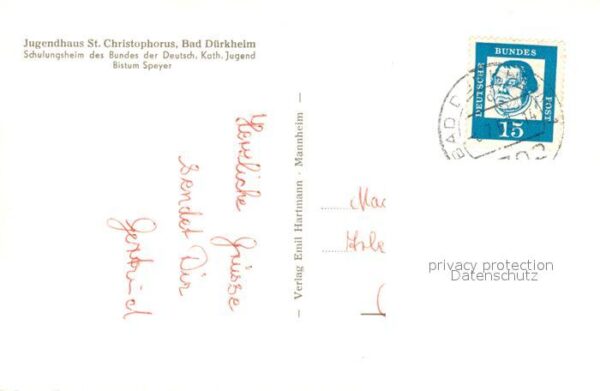 Jugendhaus St. Christophorus, Bad Dürkheim
Schulungsheim des Bundes der Deutsch. Kath. Jugend
Bistum Speyer
Herzliche Grüsse
sendet Dir
Gertrud
— Verlag Emil Hartmann · Mannheim —
DEUTSCHE
BUNDES
POST
15
BAD D
privacy protection
Datenschutz